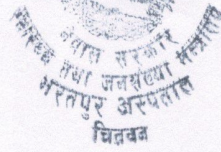 नेपाल सरकार
स्वास्थ्य तथा जनसंख्या मन्त्रालय
भरतपुर अस्पताल
चितवन